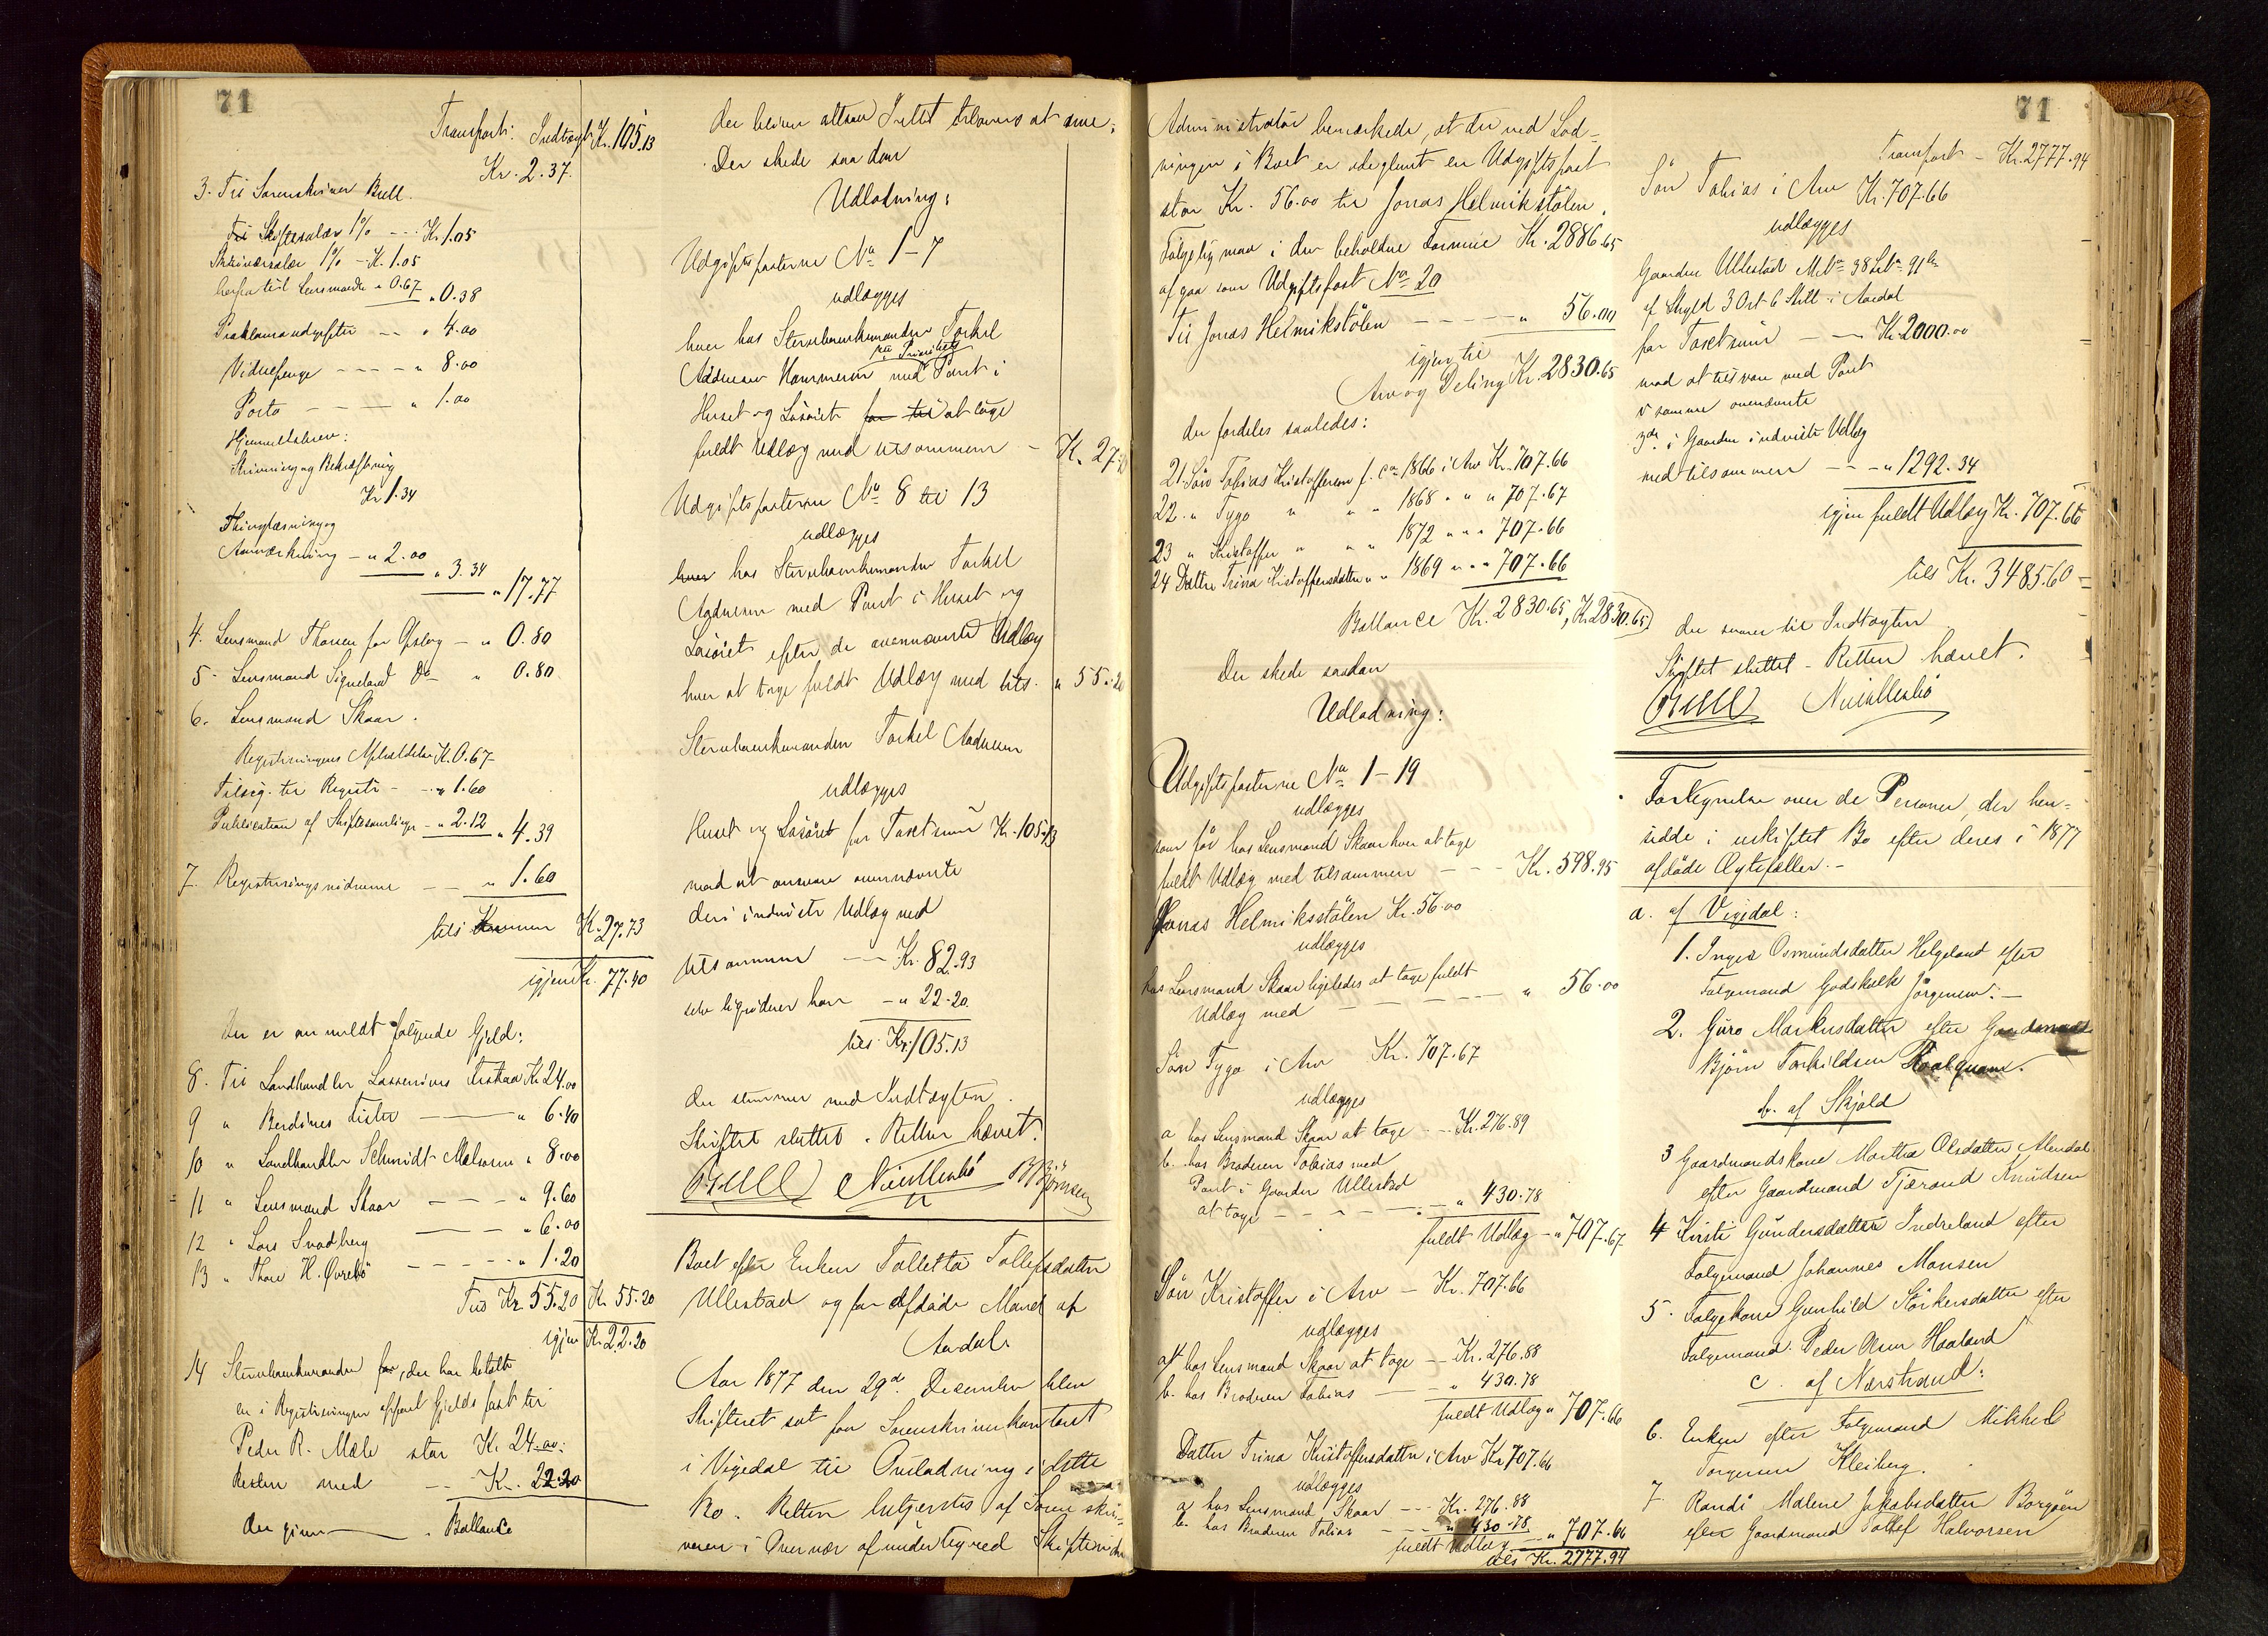 71
Transport: Indtægt Kr. 105.13
Kr. 2.37.
3. Til Sorenskriver Bull.
Til Skiftesalær 1% --- Kr 1.05
1% - K. 1.05
herfra til Lensmanden " 0.67 " 0.38
Proklamaudgifter -- " 4.00
--- " 8.00
Porto --- " 1.00
Hjemmelsbrev:
Skrivning og Bekræftning
Kr 1.34
Thinglæsning og
Anmærkning - " 2.00
" 3.34
" 17.77
4. Lensmand Thorsen for Opslag - " 0.80
5. Lensmand Sigveland Do " 0.80
6. Lensmand Skaar.
Registreringens Afholdelse K. 0.67
til Registr - " 1.60
Publication af Skiftesamlinge - " 2.12 " 4.39
7. Registreringsvidnerne -- " 1.60
tilsammen K. 27.73
igjen Kr. 77.40
Der er anmeldt følgende Gjeld:
8. Til Landhandler Kr 24.00
9 " --- " 6.40
10 " Landhandler Schmidt " 8.00
11 " Lensmand Skaar --- " 9.60
12 " Lars Svadberg --- " 6.00
13 " Thore H. Øvrebö --- " 1.20
Kr 55.20 Kr 55.20
igjen Kr. 22.20
14 for, der har betalt
en i Registreringen opført Gjeldspost til
Peder R. Mæle stor Kr 24.00.
Resten med -- K. 22.20
der giver --- Ballance
Der bliver altsaa Intet tilovers at arve;
Der skede saadan
Udlodning:
Udgiftsposterne No 1-7
udlægges
hver hos Sterbboenkemanden Torkel
Aadnesen med Pant i
pr. Prioritet
Huset og Løsøret for til at tage
fuldt Udlæg med tilsammen - K. 27.
Udgiftsposterne No 8 til 13
udlægges
hver hos Sterbboenkemanden Torkel
Aadnesen med Pant i Huset og
Løsøret efter de ovennævnte Udlæg
hver at tage fuldt Udlæg med tils. " 55.20
Sterbboenkemanden Torkel Aadnesen
udlægges
Huset og Løsöret for Taxtsum Kr. 105.13
mod at ansvare ovennævnte
deri indviste Udlæg med
tilsammen -- Kr. 82.93
selv ligviderer han - " 22.20
tils. Kr. 105.13
der stemmer med Indtægten.
Skiftet sluttet. Retten hævet.
Bull
Boet efter Enken Tolletta Tollefsdatter
Ullestad og før afdøde Mand af
Aardal.
Aar 1877 den 29d. December blev
Skifteret sat paa Sorenskriverkontoret
i Vigedal til Omlodning i dette
Bo. Retten betjentes af Sorenskri-
veren i Overvær af undertegned Skiftevidn
71
Administrator bemærkede, at der ved Lod-
ningen i Boet er udeglemt en Udgiftspost
stor Kr. 56.00 til Jonas Helmikstølen.
Følgelig maa i den beholdne Formue Kr. 2886.65
afgaa som Udgiftspost No 20
Til Jonas Helmikstølen ---- " 56.00
igjen til
Arv og Deling Kr. 2830.65
der fordeles saaledes:
21. Søn Tobias Kristoffersen f. ca 1866 i Arv Kr. 707.66
22. " Tygo " " " 1868 " " " 707.67
23 " Kristoffer " " " 1872 " " " 707.66
24 Datter Trina Kristoffersdatter " " 1869 " " " 707.66
Ballance Kr. 2830.65, Kr. 2830.65
Der skede saadan
Udlodning:
Udgiftsposterne No 1-19
udlægges
som før hos Lensmand Skaar hver at tage
fuldt Udlæg med tilsammen --- Kr. 598.95
Jonas Helmiksstølen Kr. 56.00
udlægges
hos Lensmand Skaar ligeledes at tage fuldt
Udlæg med --- " 56.00
Søn Tygo i Arv Kr. 707.67
udlægges
a hos Lensmand Skaar at tage --- Kr. 276.89
b. hos Broderen Tobias med
Pant i Gaarden Ullestad
at tage --- " 430.78
fuldt Udlæg - " 707.67
Søn Kristoffer i Arv - Kr. 707.66
udlægges
a hos Lensmand Skaar at tage -- Kr. 276.88
b. hos Broderen Tobias -- " 430.78
fuldt Udlæg " 707.66
Datter Trina Kristoffersdatter i Arv Kr 707.66
udlægges
a hos Lensmand Skaar --- Kr. 276.88
b. hos Broderen Tobias --- " 430.78
fuldt Udlæg " 707.66
tils Kr. 2777.94
Transport - Kr. 2777.94
Søn Tobias i Arv Kr. 707.66
udlægges
Gaarden Ullestad 38
af Skyld 3 Ort 6 Skill i Aardal
for Taxtsum -- Kr. 2000.00
mod at tilsvare med Pant
i samme ovennævnte
i Gaarden indviste Udlæg
med tilsammen --- " 1292.34
igjen fuldt Udlæg Kr. 707.66
tils Kr. 3485.60
der svarer til Indtægten.
Skiftet sluttet - Retten hævet.
Bull
Fortegnelse over de Personer, der hen-
sidde i uskiftet Bo efter deres i 1877
afdøde Ægtefæller.-
a. af Vigedal:
1. Inger Osmundsdatter Helgeland efter
Folgemand Godskalk Jörgensen.-
2. Guro Markusdatter efter Gaardmand
Bjørn Torkildsen
b. af Skjold
3 Gaardmandskone Martha Olsdatter
efter Gaardmand Tjærand Knudsen
4 Kirsti Gundersdatter Indreland efter
Folgemand Johannes Monsen
5. Folgekone Gunhild Störkersdatter efter
Folgemand Peder Olsen Haaland
c. af Nærstrand:
6. Enken efter Folgemand Mikkel
Torgersen Kleiberg.
7 Randi Malene Jakobsdatter Borgøen
efter Gaardmand Tollef Halvorsen